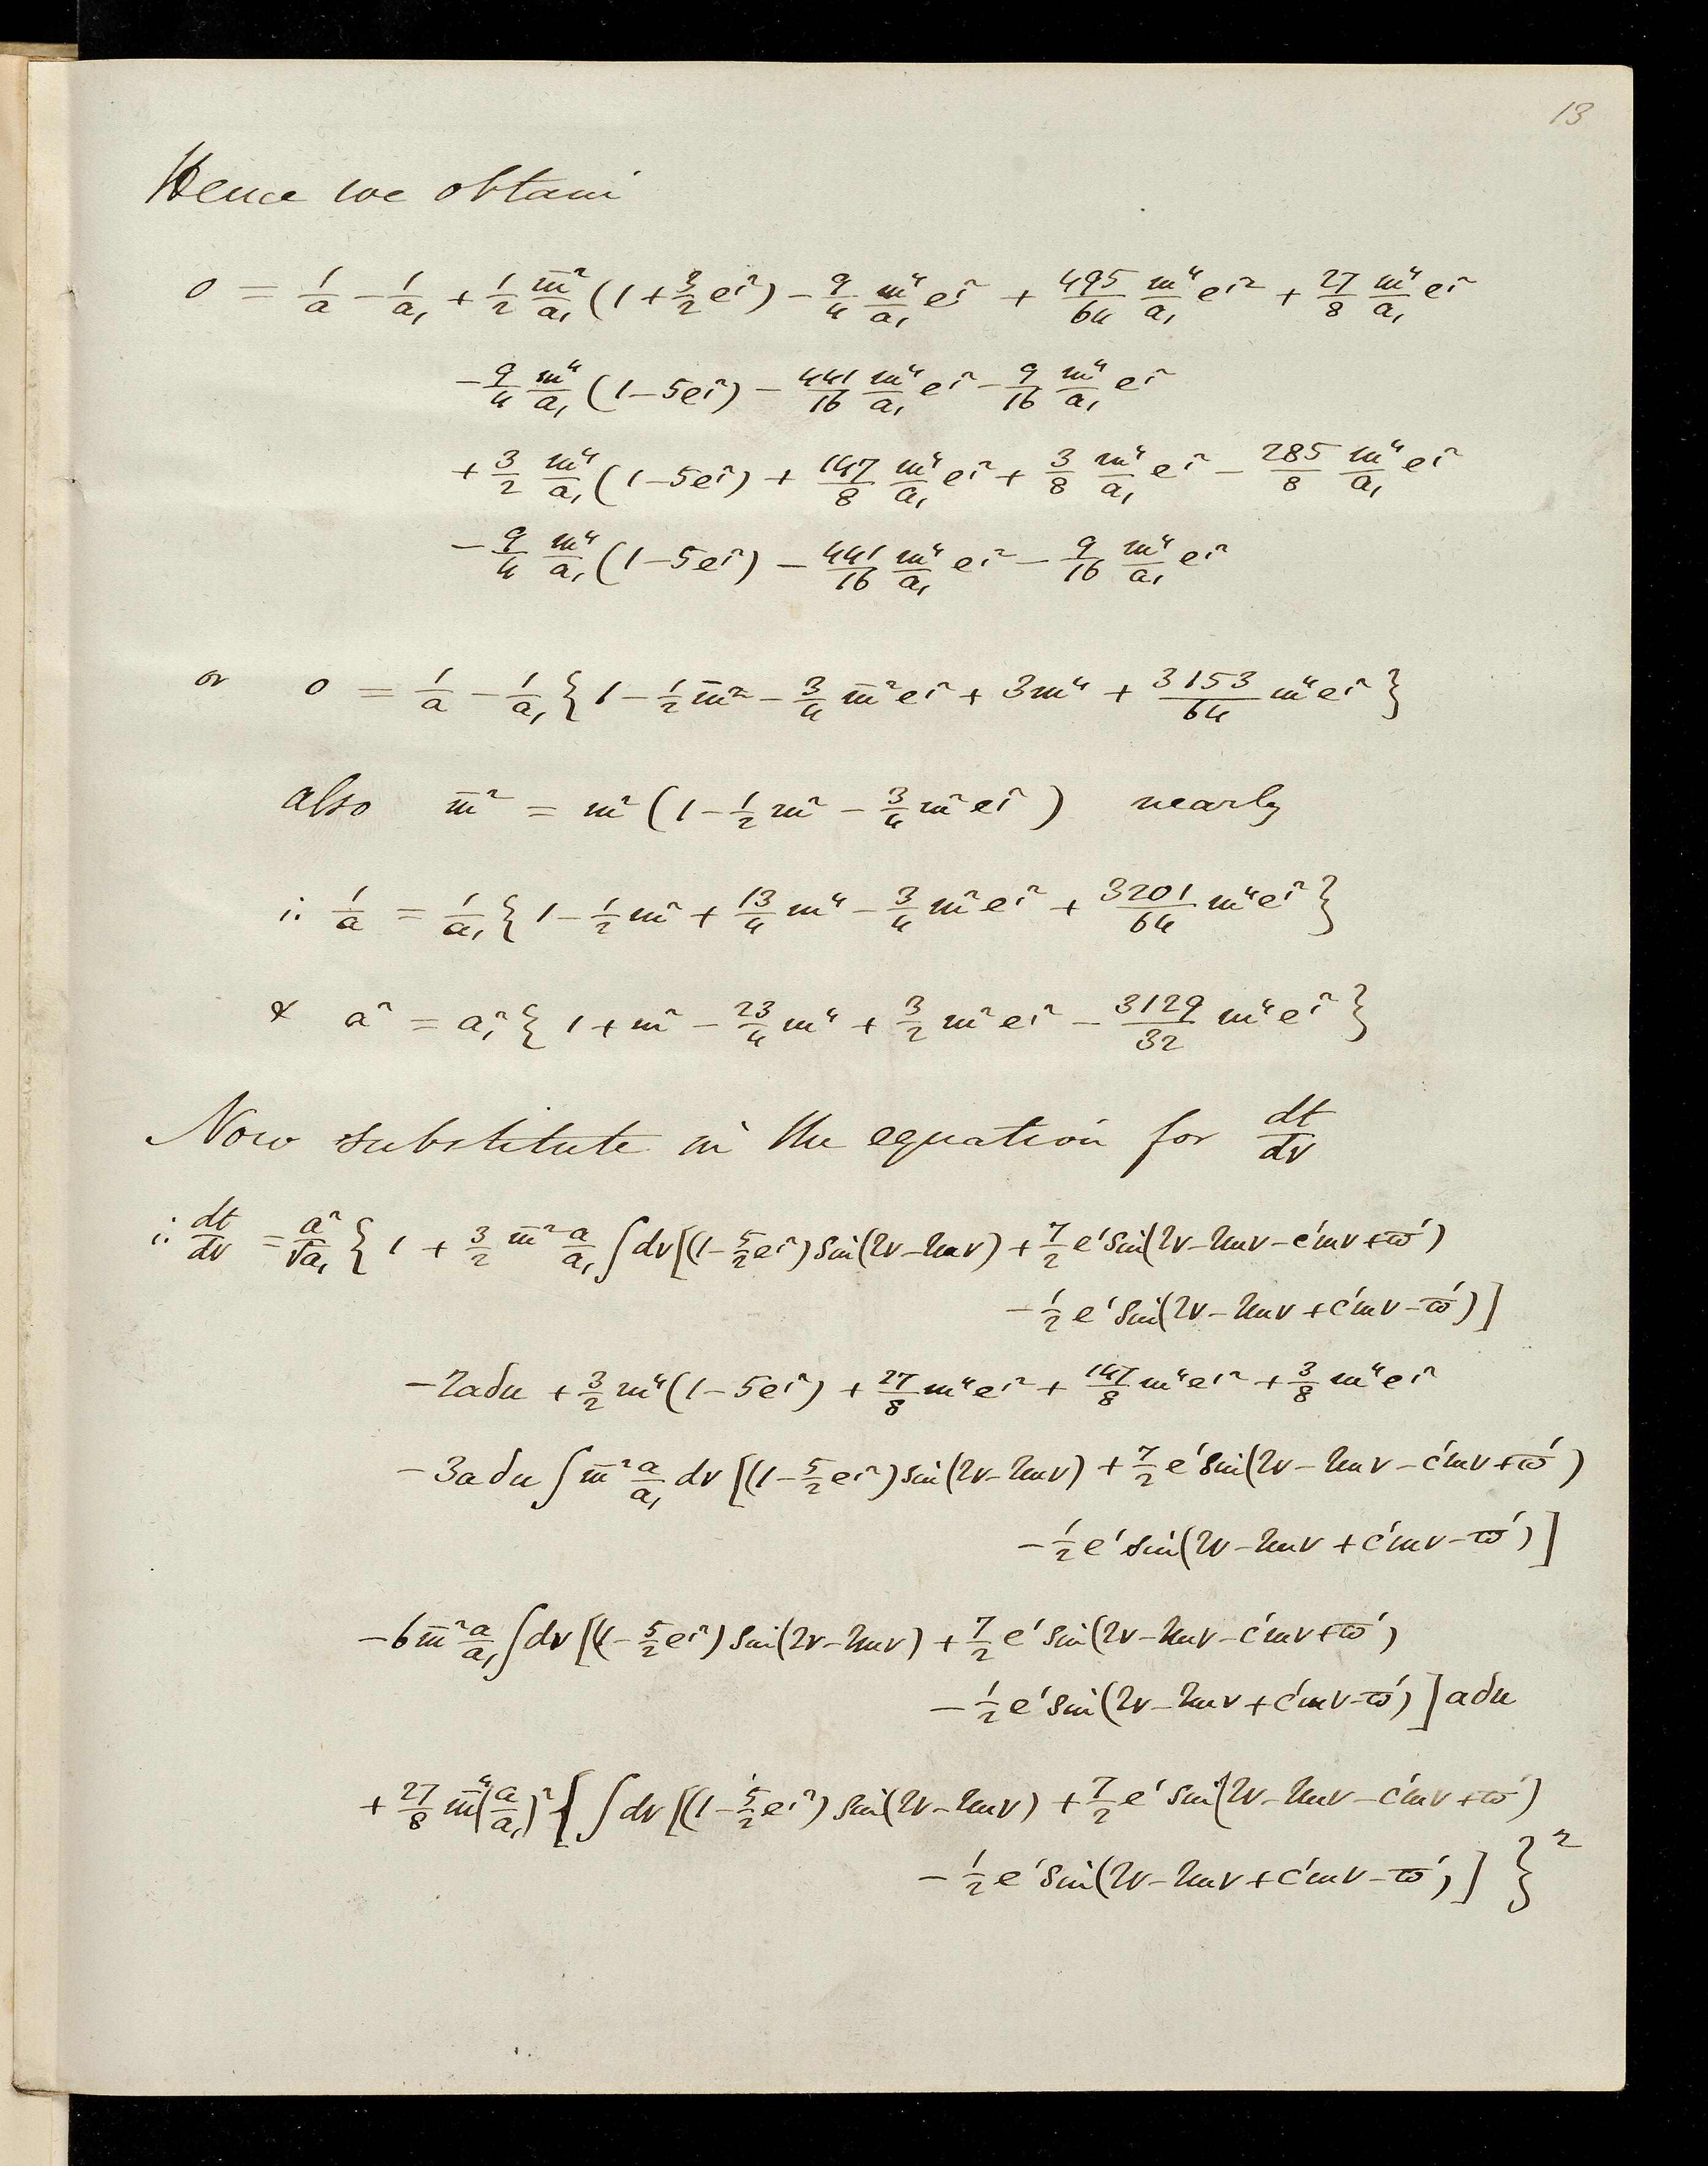 13
Hence we obtain
0 = 1/a − 1/a₁ + 1/2 m̄²/a₁ (1 + 3/2 e′²) − 9/4 m⁴/a₁ e′² + 495/64 m⁴/a₁ e′² + 27/8 m⁴/a₁ e′²
− 9/4 m⁴/a₁ (1 − 5e′²) − 441/16 m⁴/a₁ e′² − 9/16 m⁴/a₁ e′²
+ 3/2 m⁴/a₁ (1 − 5e′²) + 147/8 m⁴/a₁ e′² + 3/8 m⁴/a₁ e′² − 285/8 m⁴/a₁ e′²
− 9/4 m⁴/a₁ (1 − 5e′²) − 441/16 m⁴/a₁ e′² − 9/16 m⁴/a₁ e′²
or 0 = 1/a − 1/a₁ { 1 − 1/2 m̄² − 3/4 m̄² e′² + 3m⁴ + 3153/64 m⁴ e′² }
also m̄² = m² (1 − 1/2 m² − 3/4 m² e′²) nearly
∴ 1/a = 1/a₁ { 1 − 1/2 m² + 13/4 m⁴ − 3/4 m² e′² + 3201/64 m⁴ e′² }
& a² = a₁² { 1 + m² − 23/4 m⁴ + 3/2 m² e′² − 3129/32 m⁴ e′² }
Now substitute in the equation for dt/dv
∴ dt/dv = a²/√a₁ { 1 + 3/2 m̄² a/a₁ ∫dv [(1 − 5/2 e′²) sin(2v − 2mv) + 7/2 e′ sin(2v − 2mv − c′mv + ϖ′)
− 1/2 e′ sin(2v − 2mv + c′mv − ϖ′)]
− 2aδu + 3/2 m⁴ (1 − 5e′²) + 27/8 m⁴ e′² + 147/8 m⁴ e′² + 3/8 m⁴ e′²
− 3aδu ∫ m̄² a/a₁ dv [(1 − 5/2 e′²) sin(2v − 2mv) + 7/2 e′ sin(2v − 2mv − c′mv + ϖ′)
− 1/2 e′ sin(2v − 2mv + c′mv − ϖ′)]
− 6 m̄² a/a₁ ∫dv [(1 − 5/2 e′²) sin(2v − 2mv) + 7/2 e′ sin(2v − 2mv − c′mv + ϖ′)
− 1/2 e′ sin(2v − 2mv + c′mv − ϖ′)] aδu
+ 27/8 m̄⁴ (a/a₁)² { ∫dv [(1 − 5/2 e′²) sin(2v − 2mv) + 7/2 e′ sin(2v − 2mv − c′mv + ϖ′)
− 1/2 e′ sin(2v − 2mv + c′mv − ϖ′)] }²